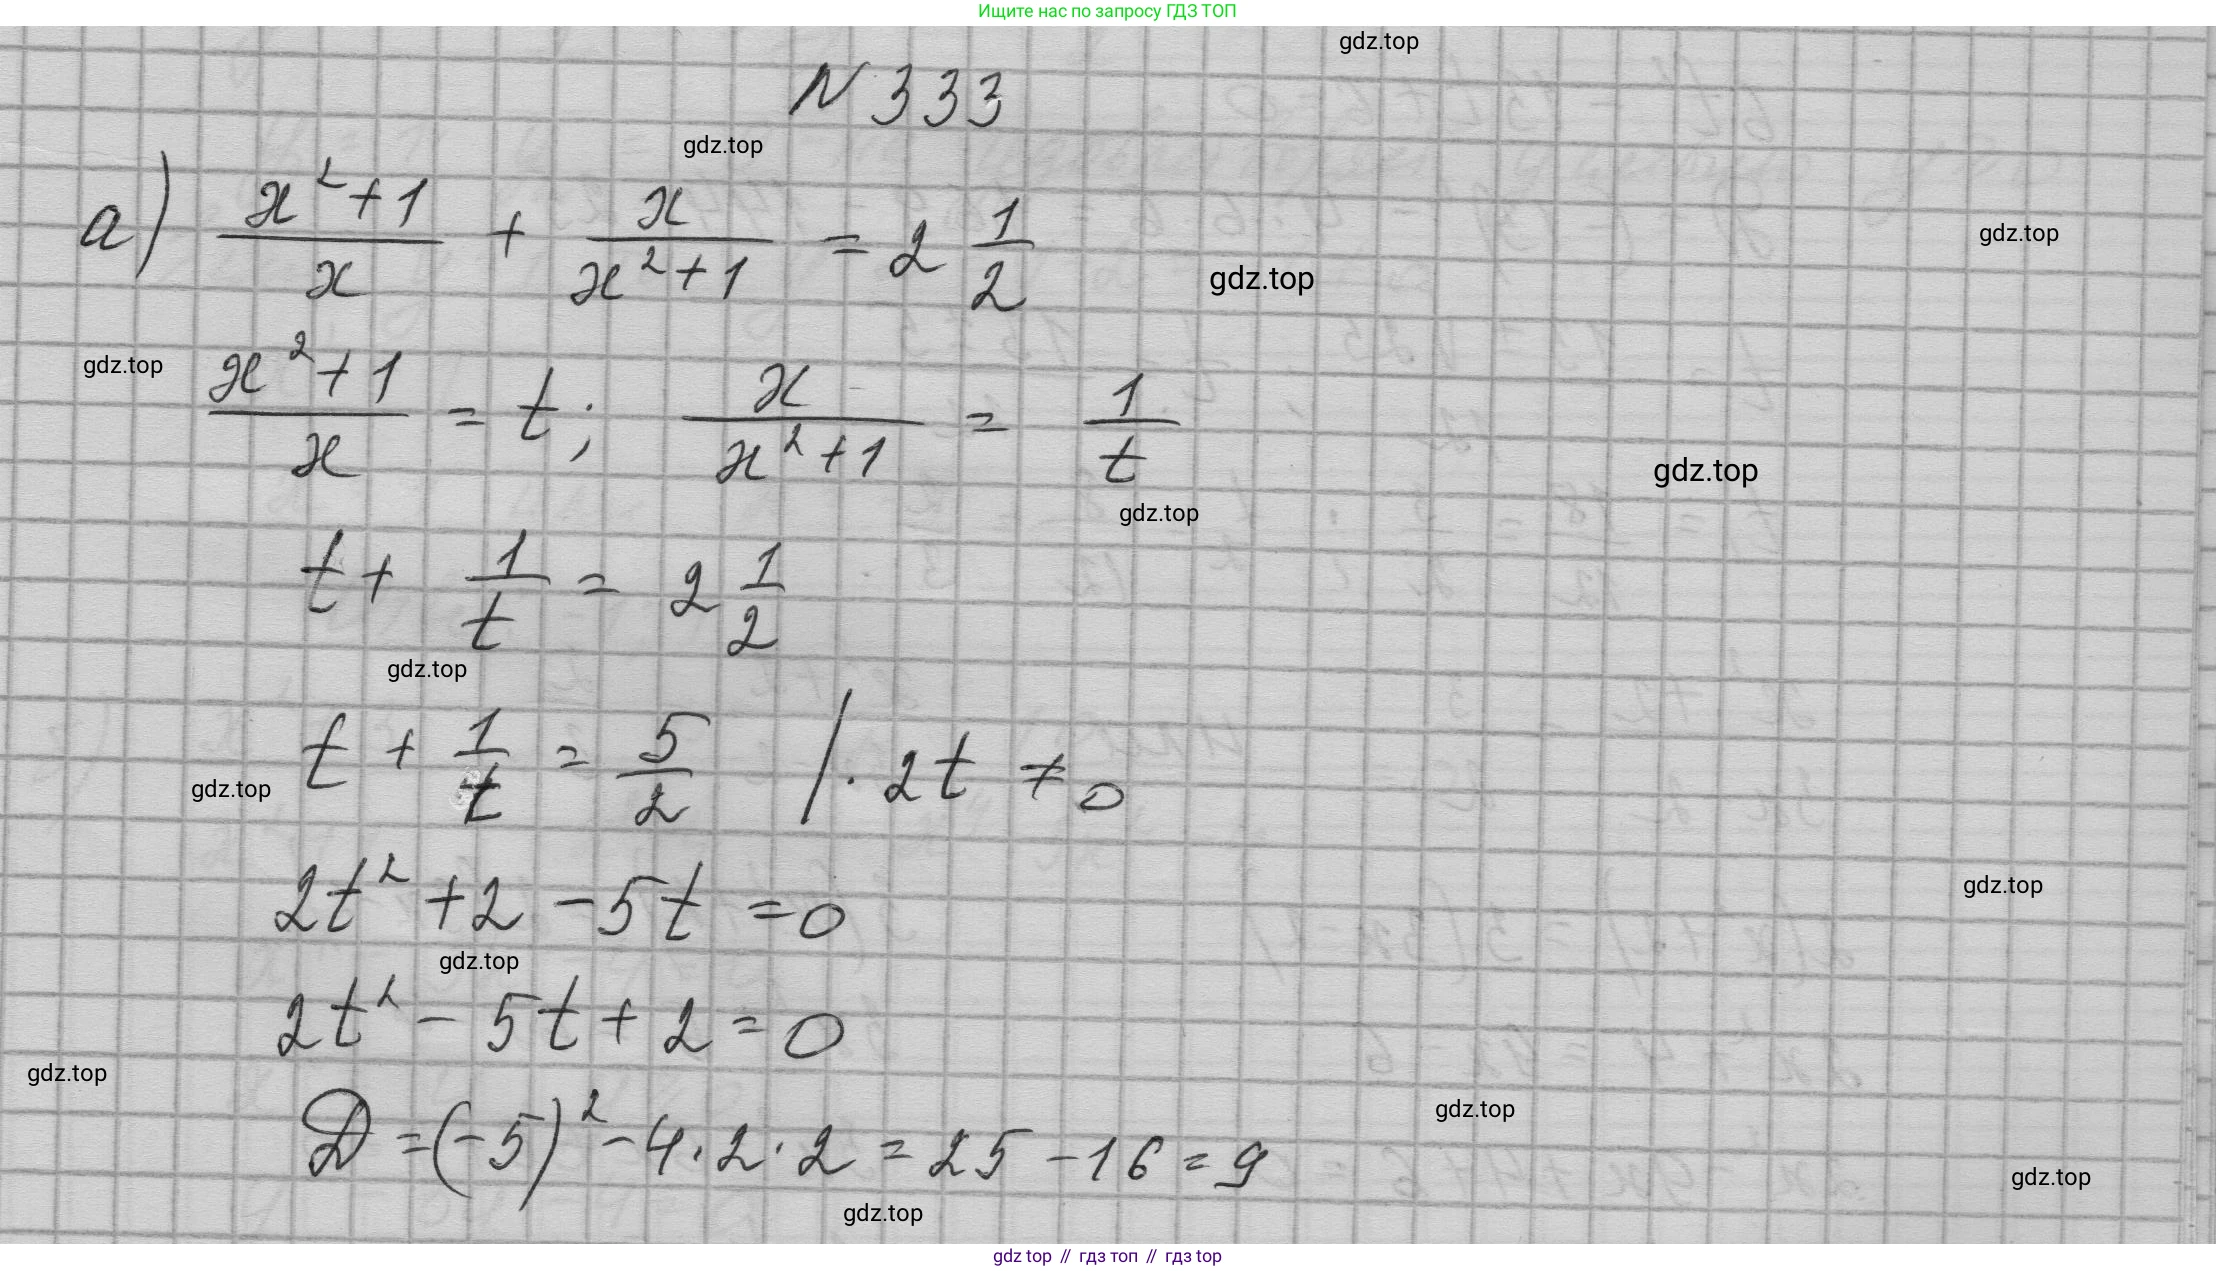 Ищите нас по запросу ГДЗ ТОП
gdz.top
N 333
gdz.top
а) (x²+1)/x + x/(x²+1) = 2 1/2
gdz.top
gdz.top
gdz.top
(x²+1)/x = t; x/(x²+1) = 1/t
gdz.top
gdz.top
t + 1/t = 2 1/2
gdz.top
t + 1/t = 5/2 / · 2t ≠ 0
gdz.top
2t² + 2 - 5t = 0
gdz.top
gdz.top
2t² - 5t + 2 = 0
gdz.top
gdz.top
D = (-5)² - 4 · 2 · 2 = 25 - 16 = 9
gdz.top
gdz.top
gdz top // гдз топ // гдз top